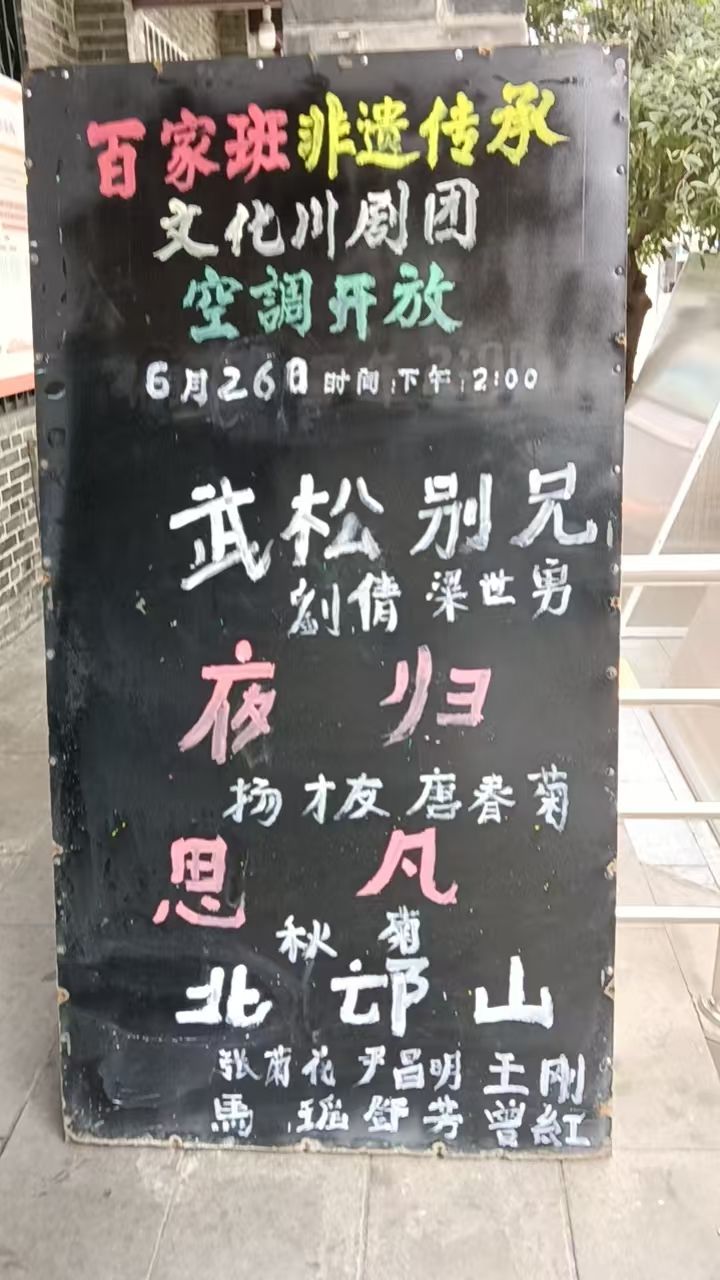 百家班非遗传承
文化川剧团
空調开放
6月26日 时间:下午:2:00
武松别兄
劉倩 梁世勇
夜归
扬才友 唐春菊
思凡
秋菊
北邙山
张菊花 尹昌明 王刚
馬瑶 舒芳 曾紅